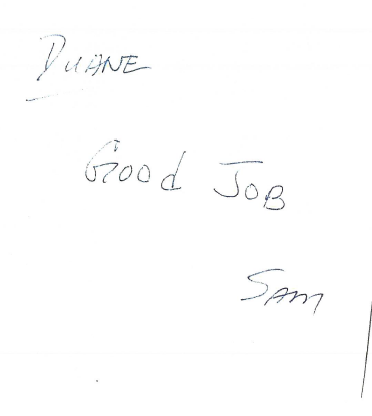 DUANE
Good JOB
SAM